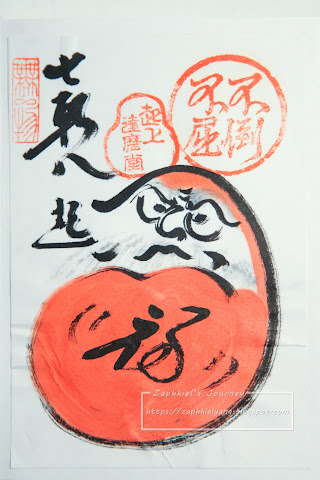 不倒
不屈
起上
達磨堂
七転八起
福
Zaphkiel's Journey
https://zaphkielyang.blogspot.com